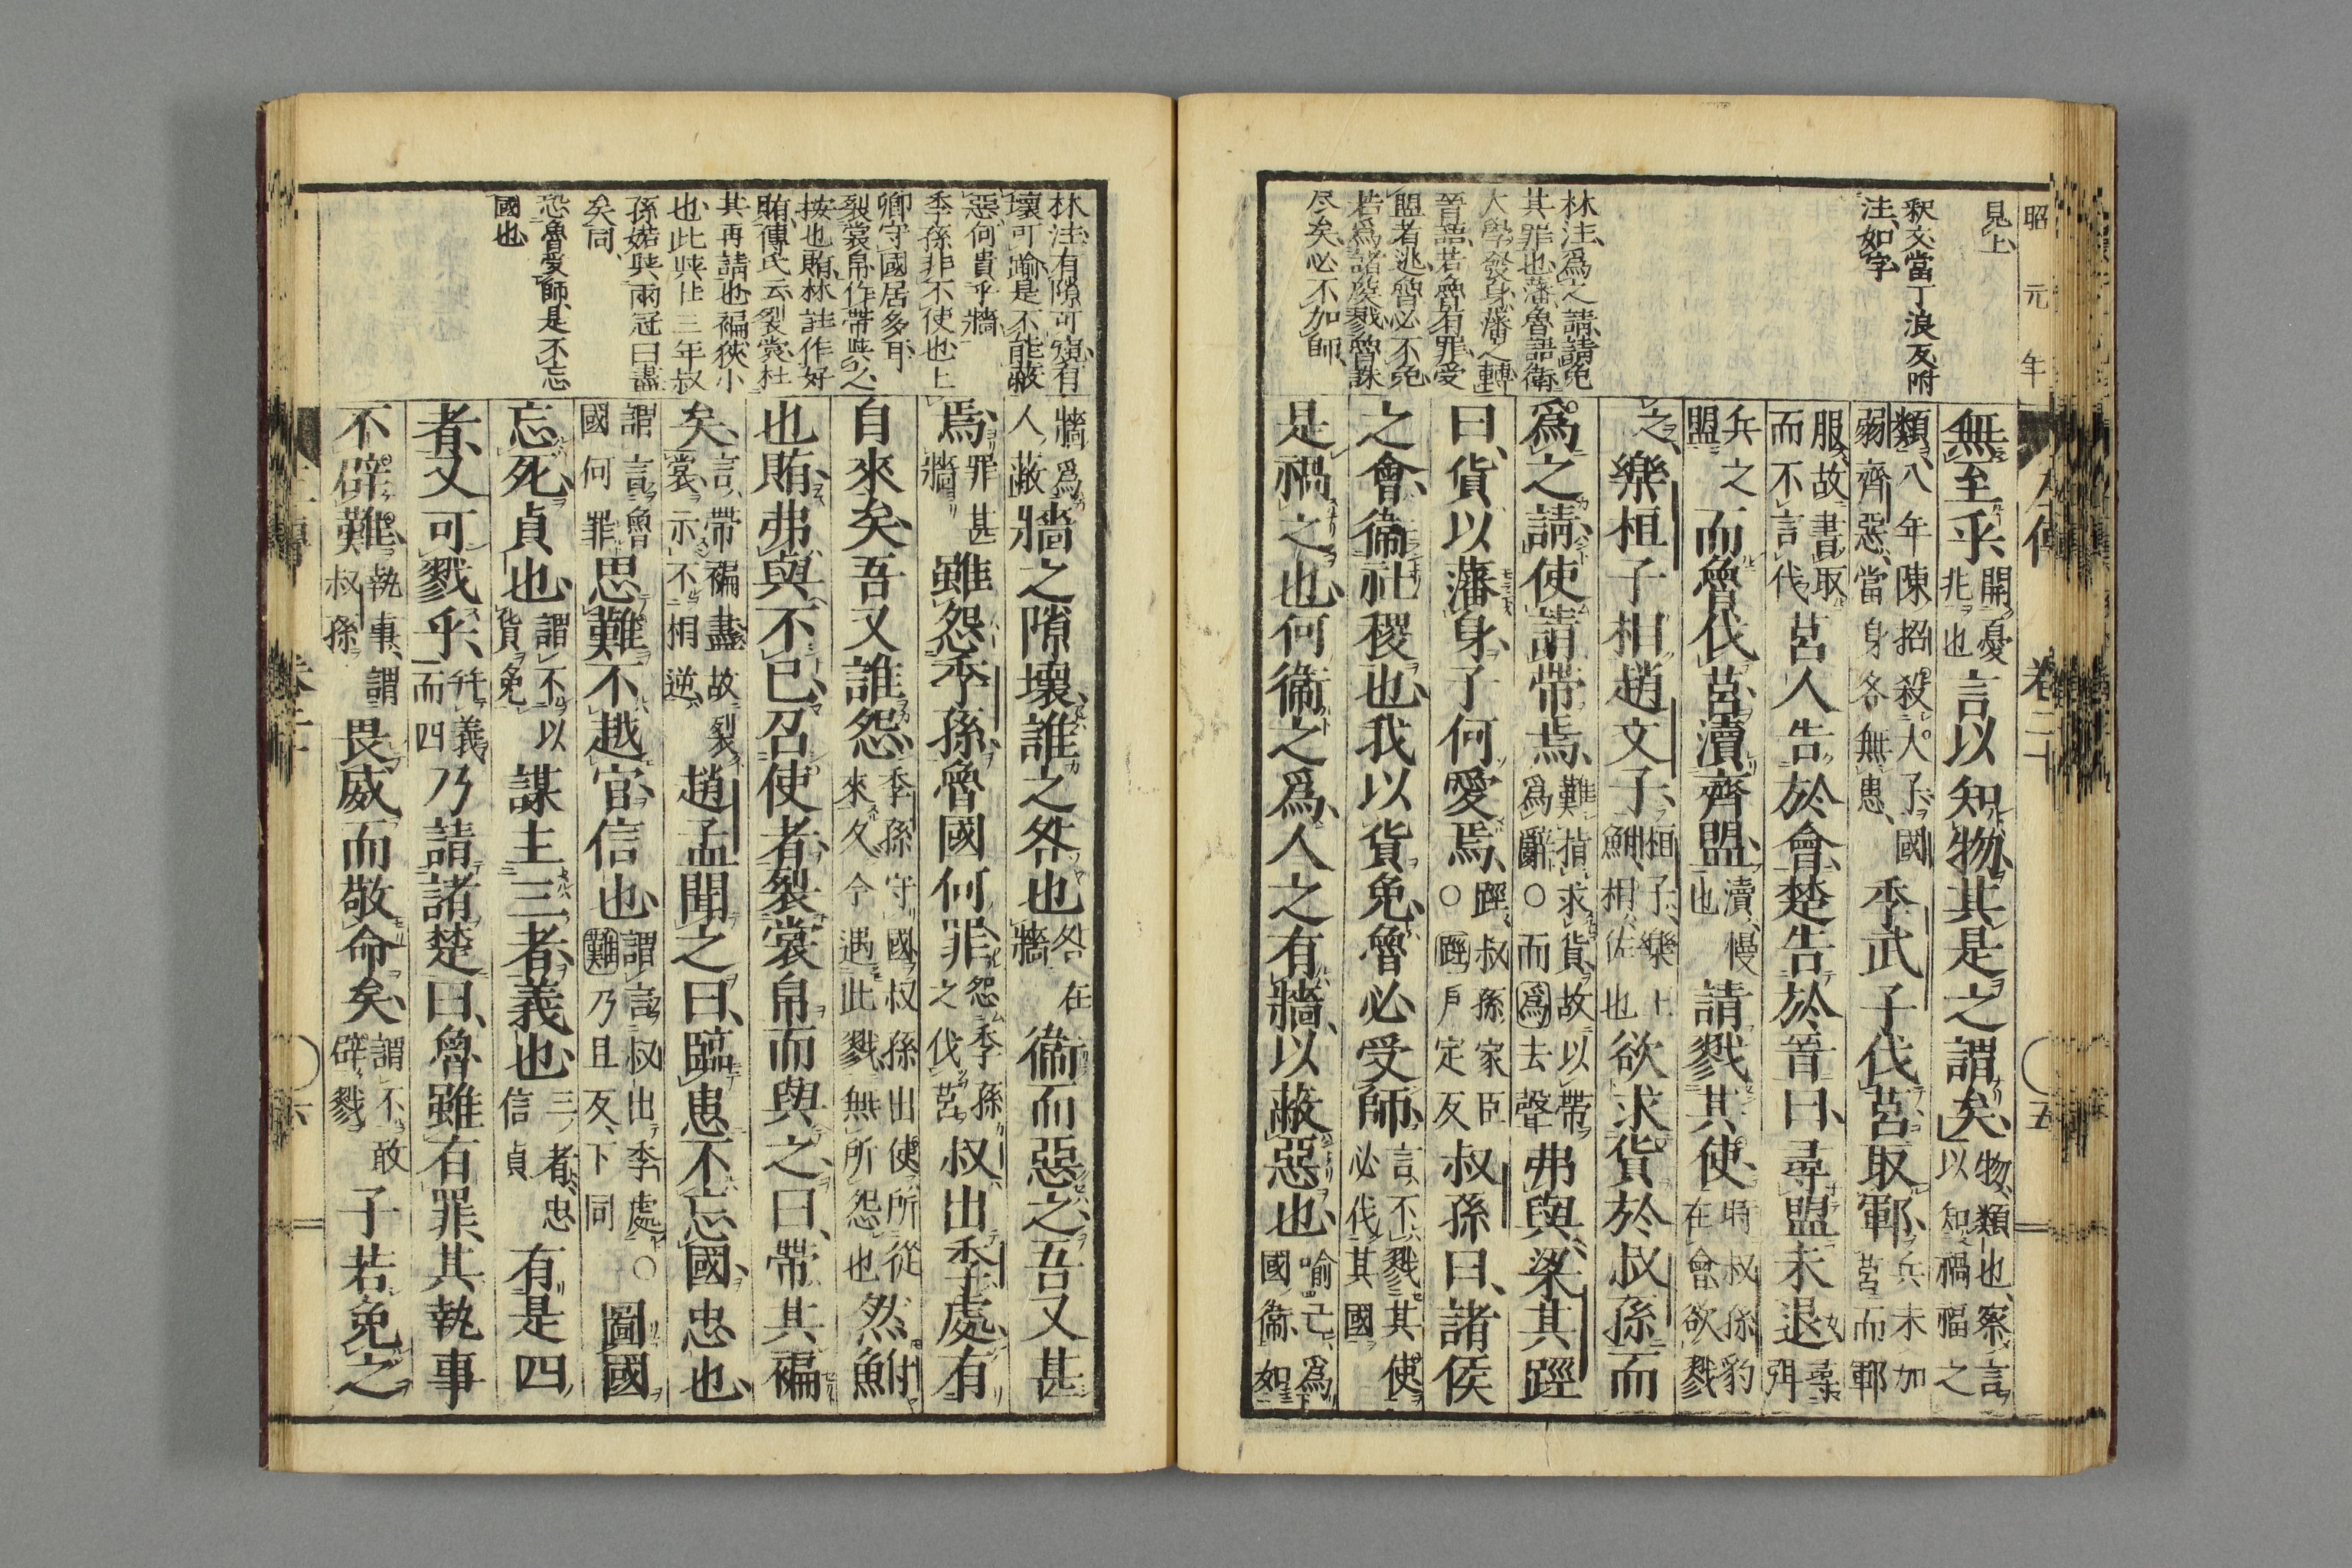 昭元年
見上
釈文當丁浪反附
注如字
林注爲之請請免
其罪也藩魯語衛
大學發身藩之轉
晉語若魯有罪受
盟者逃魯必不免
若爲諸侯戮魯誅
尽矣必不加師
左傳 卷二十 五
無至乎開憂兆也言以知物其是之謂矣物類也察言以知禍福之
類八年陳招殺人子國弱齊惡當身各無患季武子伐莒取鄆兵未加莒而鄆
服故書取而不言伐莒人告於會楚告於晉曰尋盟未退尋弭
兵之盟而魯伐莒瀆齊盟瀆慢也請戮其使時叔孫豹在會欲戮
之樂桓子相趙文子桓子樂王鮒相佐也欲求貨於叔孫而
爲之請使請帶焉難指求貨故以帶爲辭○而爲去聲弗與梁其踁
曰貨以藩身子何愛焉踁叔孫家臣○踁戶定反叔孫曰諸侯
之會衞社稷也我以貨免魯必受師言不戮其使必伐其國
是禍之也何衞之爲人之有牆以蔽惡也喻己爲國衞如
林注有隙可窺有
壞可踰是不能蔽
惡何貴乎牆
季孫非不使也上
卿守國居多耳
裂裳帛作帶與之
按也賄林註作好
賄傳氏云裂裳杜
其再請也褊狹小
也此與廿三年叔
孫婼與兩冠曰盡
矣同
恐魯受師是不忘
國也
牆爲人蔽牆之隙壞誰之咎也咎在牆衞而惡之吾又甚
焉罪甚牆雖怨季孫魯國何罪怨季孫之伐莒叔出季處有
自來矣吾又誰怨季孫守國叔孫出使所從來久今遇此戮無所怨也然鮒
也賄弗與不已召使者裂裳帛而與之曰帶其褊
矣言帶褊盡故裂裳示不相逆趙孟聞之曰臨患不忘國忠也
謂言魯國何罪思難不越官信也謂言叔出季處○難乃且反下同圖國
忘死貞也謂不以貨免謀主三者義也三者忠信貞有是四
者又可戮乎幷義而四乃請諸楚曰魯雖有罪其執事
不辟難執事謂叔孫畏威而敬命矣謂不敢辟戮子若免之